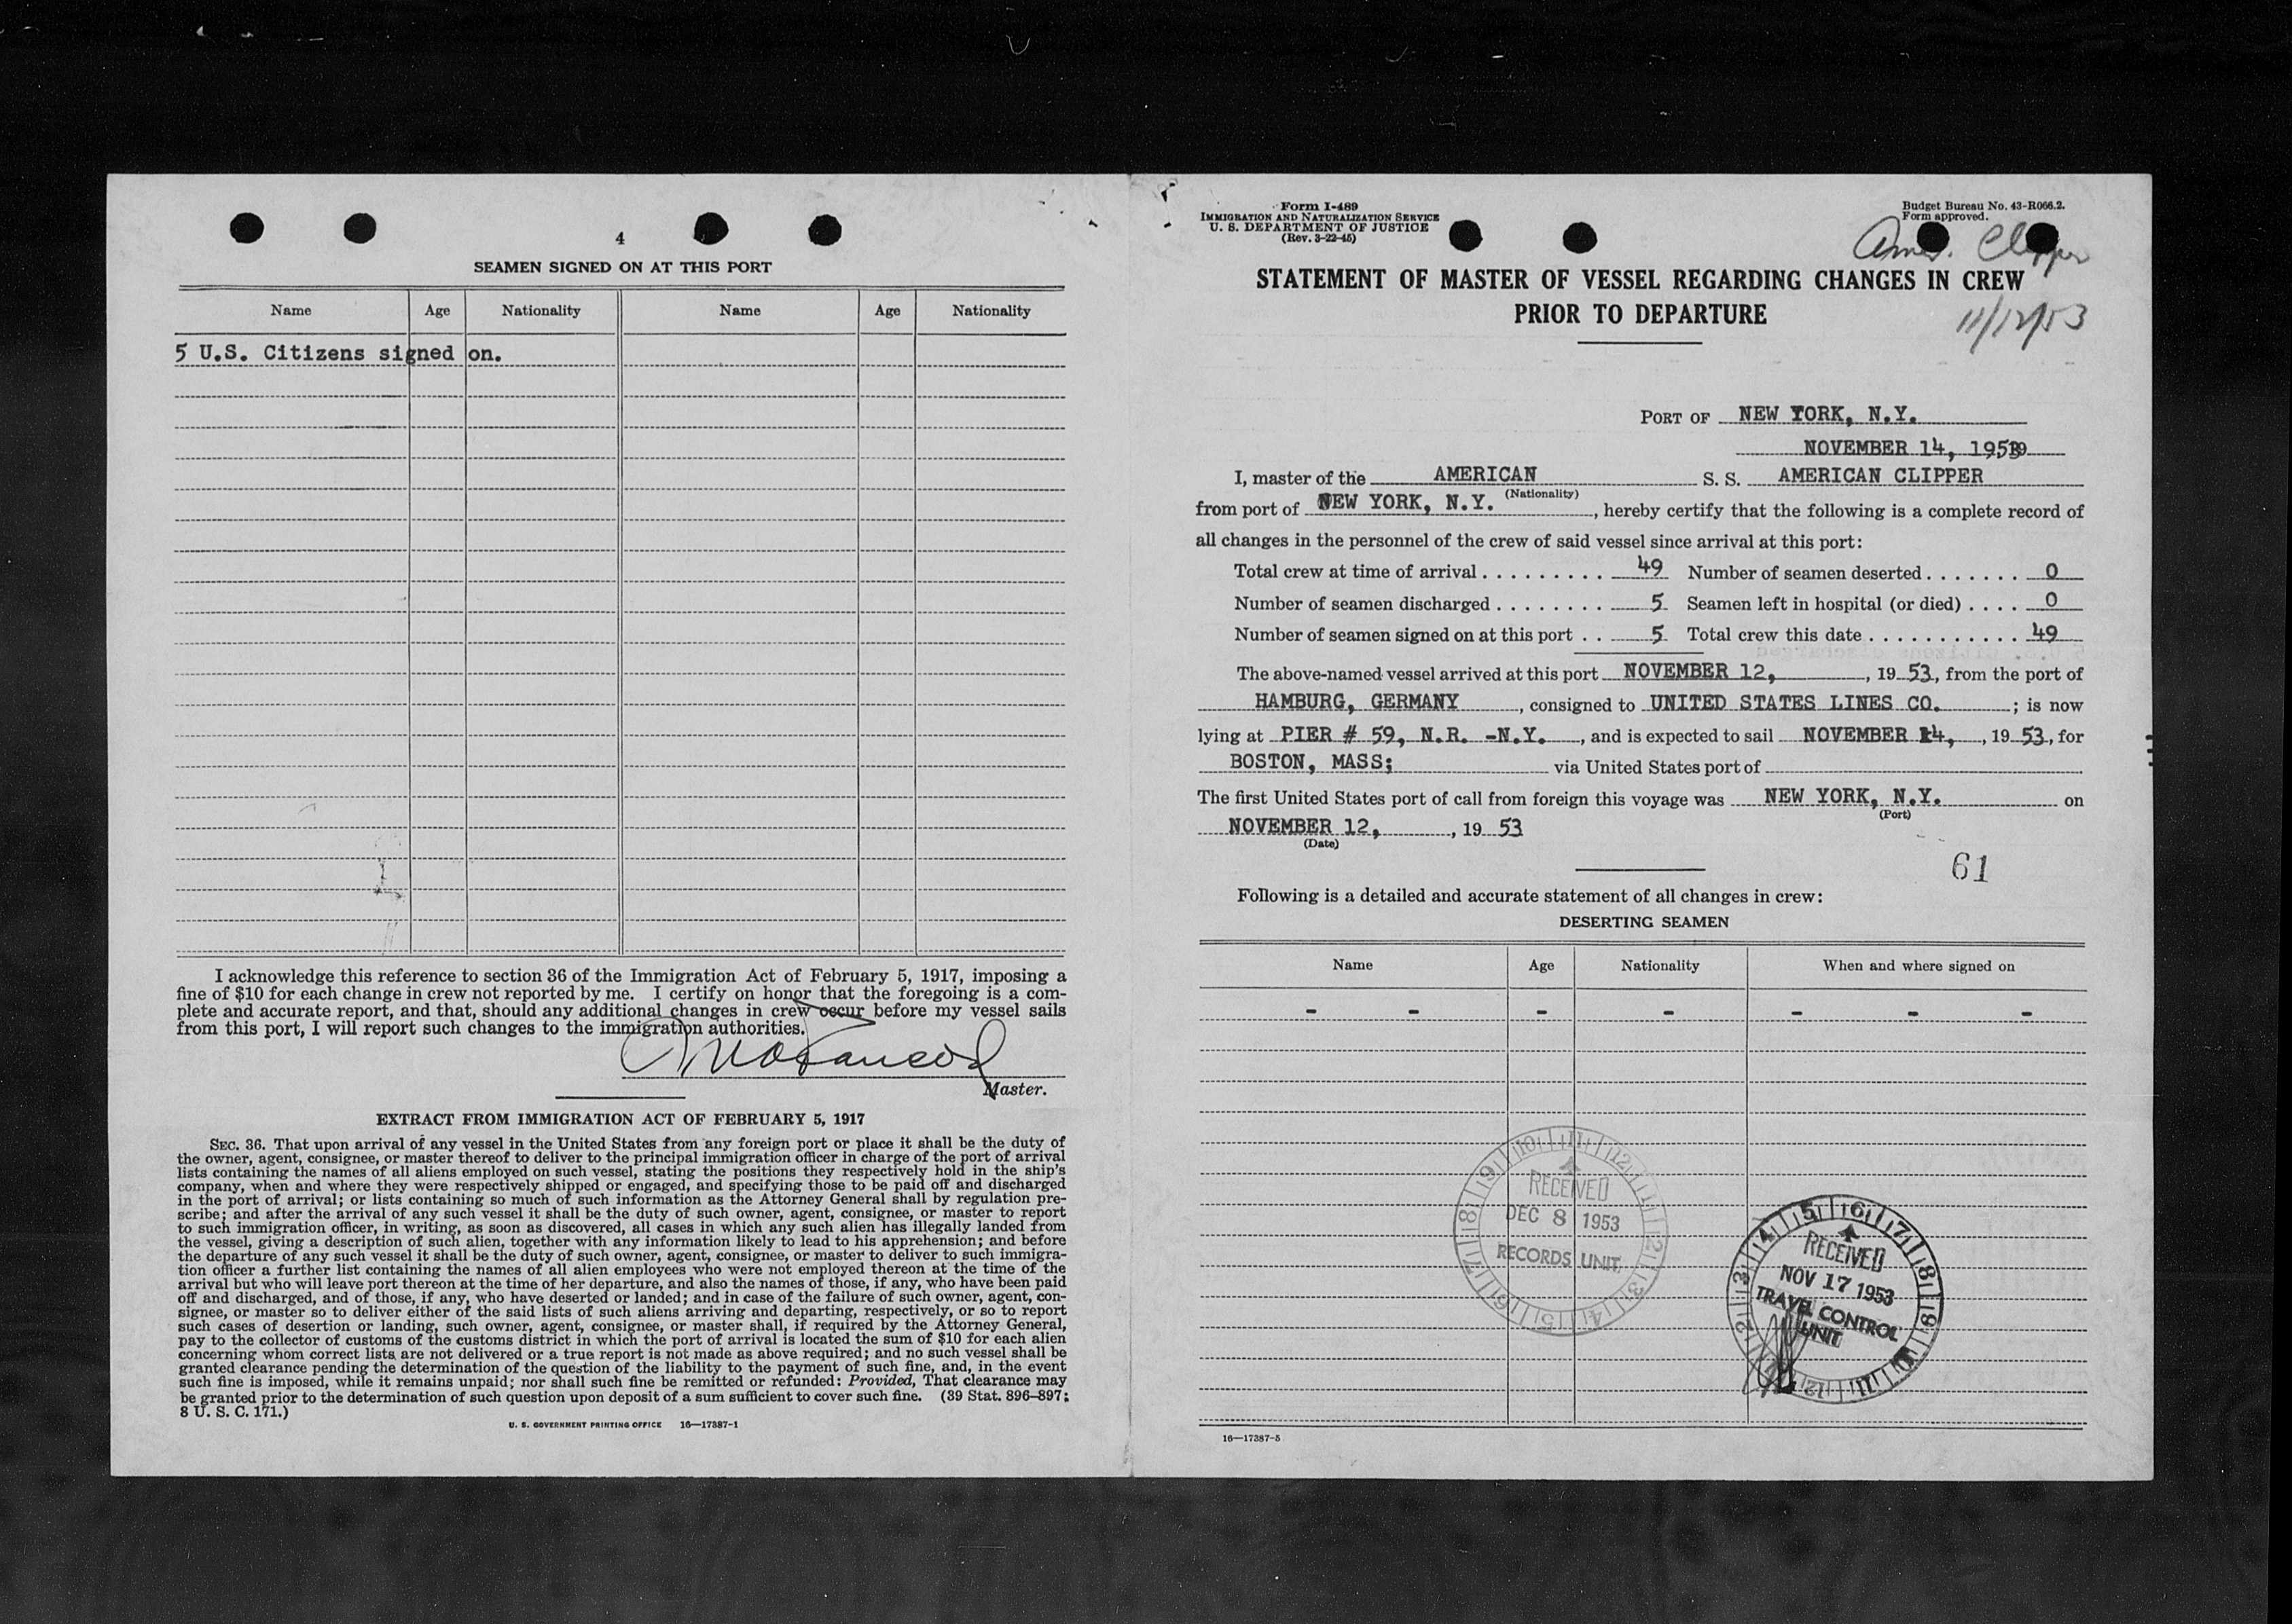 4
SEAMEN SIGNED ON AT THIS PORT
Name Age Nationality Name Age Nationality
5 U.S. Citizens signed on.
I acknowledge this reference to section 36 of the Immigration Act of February 5, 1917, imposing a
fine of $10 for each change in crew not reported by me. I certify on honor that the foregoing is a com-
plete and accurate report, and that, should any additional changes in crew occur before my vessel sails
from this port, I will report such changes to the immigration authorities.
Master.
EXTRACT FROM IMMIGRATION ACT OF FEBRUARY 5, 1917
SEC. 36. That upon arrival of any vessel in the United States from any foreign port or place it shall be the duty of
the owner, agent, consignee, or master thereof to deliver to the principal immigration officer in charge of the port of arrival
lists containing the names of all aliens employed on such vessel, stating the positions they respectively hold in the ship's
company, when and where they were respectively shipped or engaged, and specifying those to be paid off and discharged
in the port of arrival; or lists containing so much of such information as the Attorney General shall by regulation pre-
scribe; and after the arrival of any such vessel it shall be the duty of such owner, agent, consignee, or master to report
to such immigration officer, in writing, as soon as discovered, all cases in which any such alien has illegally landed from
the vessel, giving a description of such alien, together with any information likely to lead to his apprehension; and before
the departure of any such vessel it shall be the duty of such owner, agent, consignee, or master to deliver to such immigra-
tion officer a further list containing the names of all alien employees who were not employed thereon at the time of the
arrival but who will leave port thereon at the time of her departure, and also the names of those, if any, who have been paid
off and discharged, and of those, if any, who have deserted or landed; and in case of the failure of such owner, agent, con-
signee, or master so to deliver either of the said lists of such aliens arriving and departing, respectively, or so to report
such cases of desertion or landing, such owner, agent, consignee, or master shall, if required by the Attorney General,
pay to the collector of customs of the customs district in which the port of arrival is located the sum of $10 for each alien
concerning whom correct lists are not delivered or a true report is not made as above required; and no such vessel shall be
granted clearance pending the determination of the question of the liability to the payment of such fine, and, in the event
such fine is imposed, while it remains unpaid; nor shall such fine be remitted or refunded: Provided, That clearance may
be granted prior to the determination of such question upon deposit of a sum sufficient to cover such fine. (39 Stat. 896–897;
8 U. S. C. 171.)
U. S. GOVERNMENT PRINTING OFFICE 16—17387-1
Form I-489
IMMIGRATION AND NATURALIZATION SERVICE
U. S. DEPARTMENT OF JUSTICE
(Rev. 3-22-45)
Budget Bureau No. 43-R066.2.
Form approved.
Amer. Clipper
STATEMENT OF MASTER OF VESSEL REGARDING CHANGES IN CREW
PRIOR TO DEPARTURE
11/12/53
PORT OF NEW YORK, N.Y.
NOVEMBER 14, 1953
I, master of the AMERICAN S. S. AMERICAN CLIPPER
(Nationality)
from port of NEW YORK, N.Y., hereby certify that the following is a complete record of
all changes in the personnel of the crew of said vessel since arrival at this port:
Total crew at time of arrival . . . . . . . . . 49 Number of seamen deserted . . . . . . . 0
Number of seamen discharged . . . . . . . . 5 Seamen left in hospital (or died) . . . . 0
Number of seamen signed on at this port . . 5 Total crew this date . . . . . . . . . . . 49
The above-named vessel arrived at this port NOVEMBER 12, , 19 53, from the port of
HAMBURG, GERMANY , consigned to UNITED STATES LINES CO. ; is now
lying at PIER # 59, N.R. -N.Y. , and is expected to sail NOVEMBER 14, , 19 53, for
BOSTON, MASS; via United States port of
The first United States port of call from foreign this voyage was NEW YORK, N.Y. on
(Port)
NOVEMBER 12, , 19 53
(Date)
61
Following is a detailed and accurate statement of all changes in crew:
DESERTING SEAMEN
Name Age Nationality When and where signed on
- - - - - - -
10 11 12 1 2 3 4 5 6 7 8 9
RECEIVED
DEC 8 1953
RECORDS UNIT
5 6 7 8 9 10 11 12 1 2 3 4
RECEIVED
NOV 17 1953
TRAVEL CONTROL
UNIT
16—17387-5